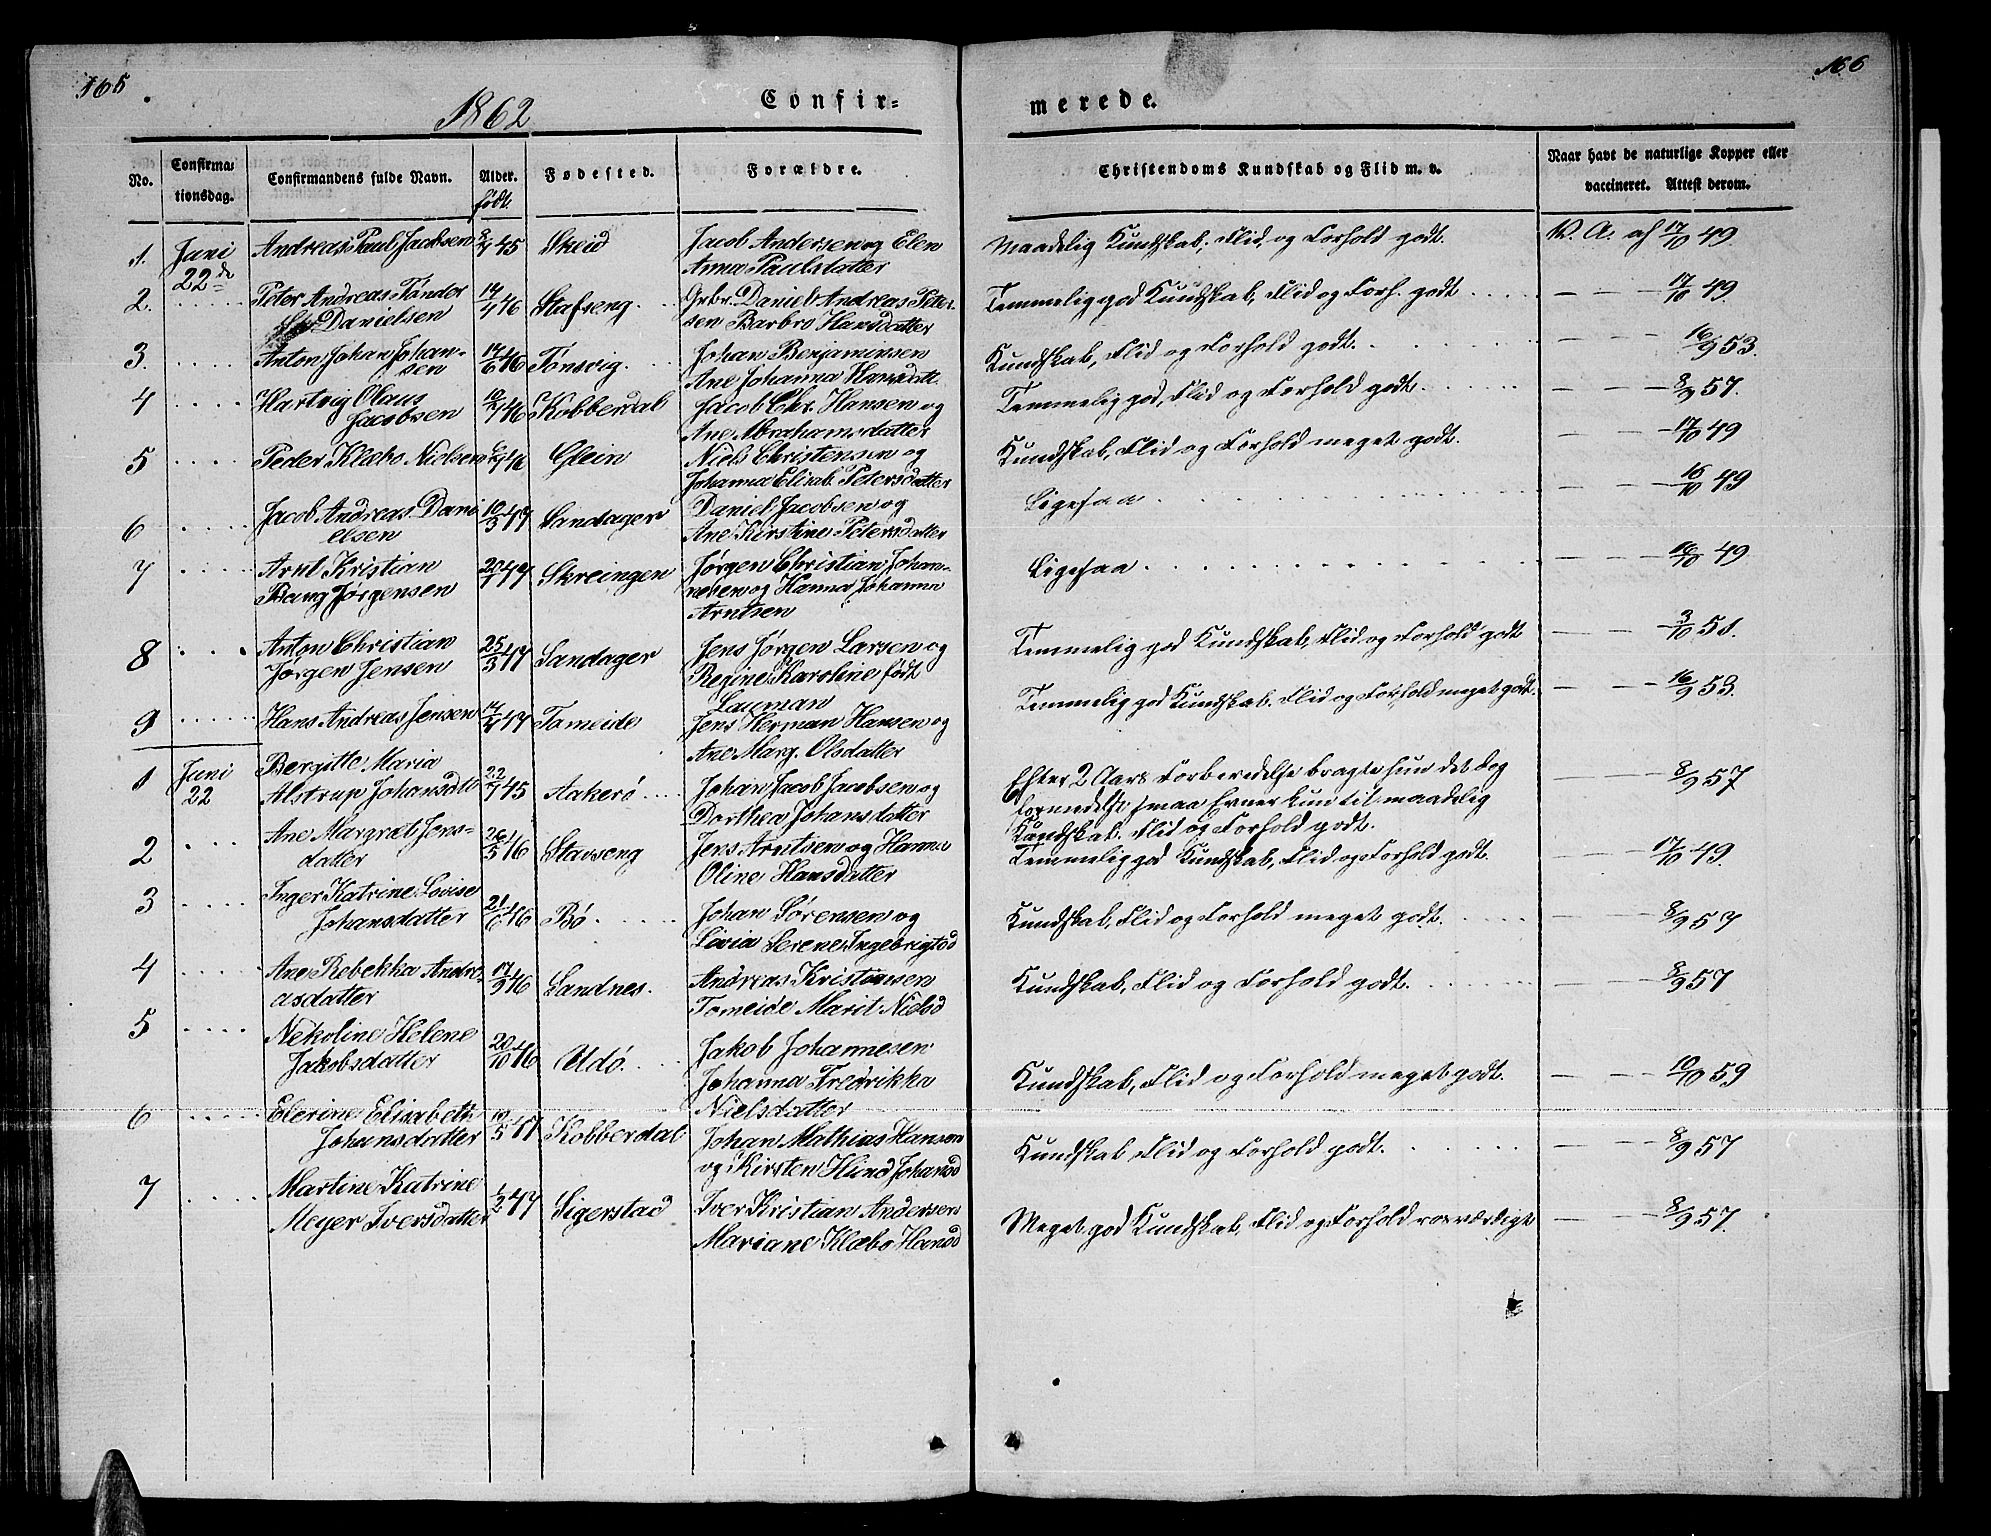 165
166
1862
Confir=
merede.
No.
Confirma=
tionsdag.
Confirmandens fulde Navn.
Alder.
født.
Fødested.
Forældre.
Christendoms Kundskab og Flid m. v.
Naar havt de naturlige Kopper eller
vaccineret. Attest derom.
1. Juni 22de Andreas Paul Jacobsen 45 Skeid Jacob Andersen og Elen Maadelig Kundskab, Flid og Forhold godt. V. A. af 17/10 49
Anna Paulsdatter
2. Peter Andreas Tønder 46 Stafseng Gbr. Daniel Andreas Peter- Temmelig god Kundskab, Flid og Forh. godt — — 17/10 49
Danielsen sen Barbro Hansdatter
3. Anton Johan Johan- 14/6 46 Tønsvig. Johan Benjaminsen Kundskab, Flid og Forhold godt. — — 16/9 53.
sen Ane Johanna Hansdatt.
4 Hartvig Olaus 46 Kobberdal Jacob Chr. Hansen og Temmelig god, Flid og Forhold godt — — 8/9 57.
Jacobsen Ane Abrahamsdatter
5 Peder Klæbo Nielsen 46 Glein Niels Christensen og Kundskab, Flid og Forhold meget godt. — — 17/10 49
Johanna Elisab. Petersdatter
6 Jacob Andreas Dani 10/3 47 Sandager Daniel Jacobsen og Ligesaa — — 16/10 49
elsen Ane Kirstine Petersdatter
7 Arnt Kristian 20/1 47 Skreingen Jørgen Christian Johan- Ligesaa — — 49
Bang Jørgensen nesen og Hanna Johanna
Arntsen
8 Anton Christian 25/3 47 Sandager Jens Jørgen Larsen og Temmelig god Kundskab, Flid og Forhold godt — — 3/10 51.
Jørgen Jensen Regine Karoline født
Lauman
9 Hans Andreas Jensen 47 Tomeide Jens Herman Hansen og Temmelig god Kundskab. Flid og Forhold meget godt. — — 16/9 53.
Ane Marg. Olsdatter
1 Juni 22 Bergitte Maria 22/7 45 Aakerø Johan Jacob Jacobsen og Efter 2 Aars Forberedelse bragte hun det dog — — 8/9 57
Alstrup Johansdtt Dorthea Johansdatter formedelst smaa Evner kun til maadelig
Kundskab. Flid og Forhold godt.
2 Ane Margret Jens- 26/5 46 Stavseng Jens Arntsen og Hanna Temmelig god Kundskab, Flid og Forhold godt. — — 17/10 49.
datter Oline Hansdatter
3 Inger Katrine Lovise 21/6 46 Bø. Johan Sørensen og Kundskab, Flid og Forhold meget godt. — — 8/9 57
Johansdatter Lovia Serene Ingebrigtsd
4 Ane Rebekka Andre- 17/9 46 Sandnes. Andreas Kristiansen Kundskab, Flid og Forhold godt. — — 8/9 57
asdatter Tomeide Marit Nielsd
5 Nekoline Helene 20/10 46 Udø. Jakob Johannesen Kundskab, Flid og Forhold meget godt. — — 10/10 59
Jakobsdatter Johanna Fredrikka
Nielsdatter
6 Elerine Elisabeth 19/5 47 Kobberdal Johan Mathias Hansen Kundskab, Flid og Forhold godt. — — 8/9 57
Johansdatter og Kirsten Hind Johansd
7 Martine Katrine 1/2 47 Sigerstad Iver Kristian Andersen Meget god Kundskab, Flid og Forhold rosværdigt — — 8/9 57.
Meyer Iversdatter Mariane Klæbo Hansd